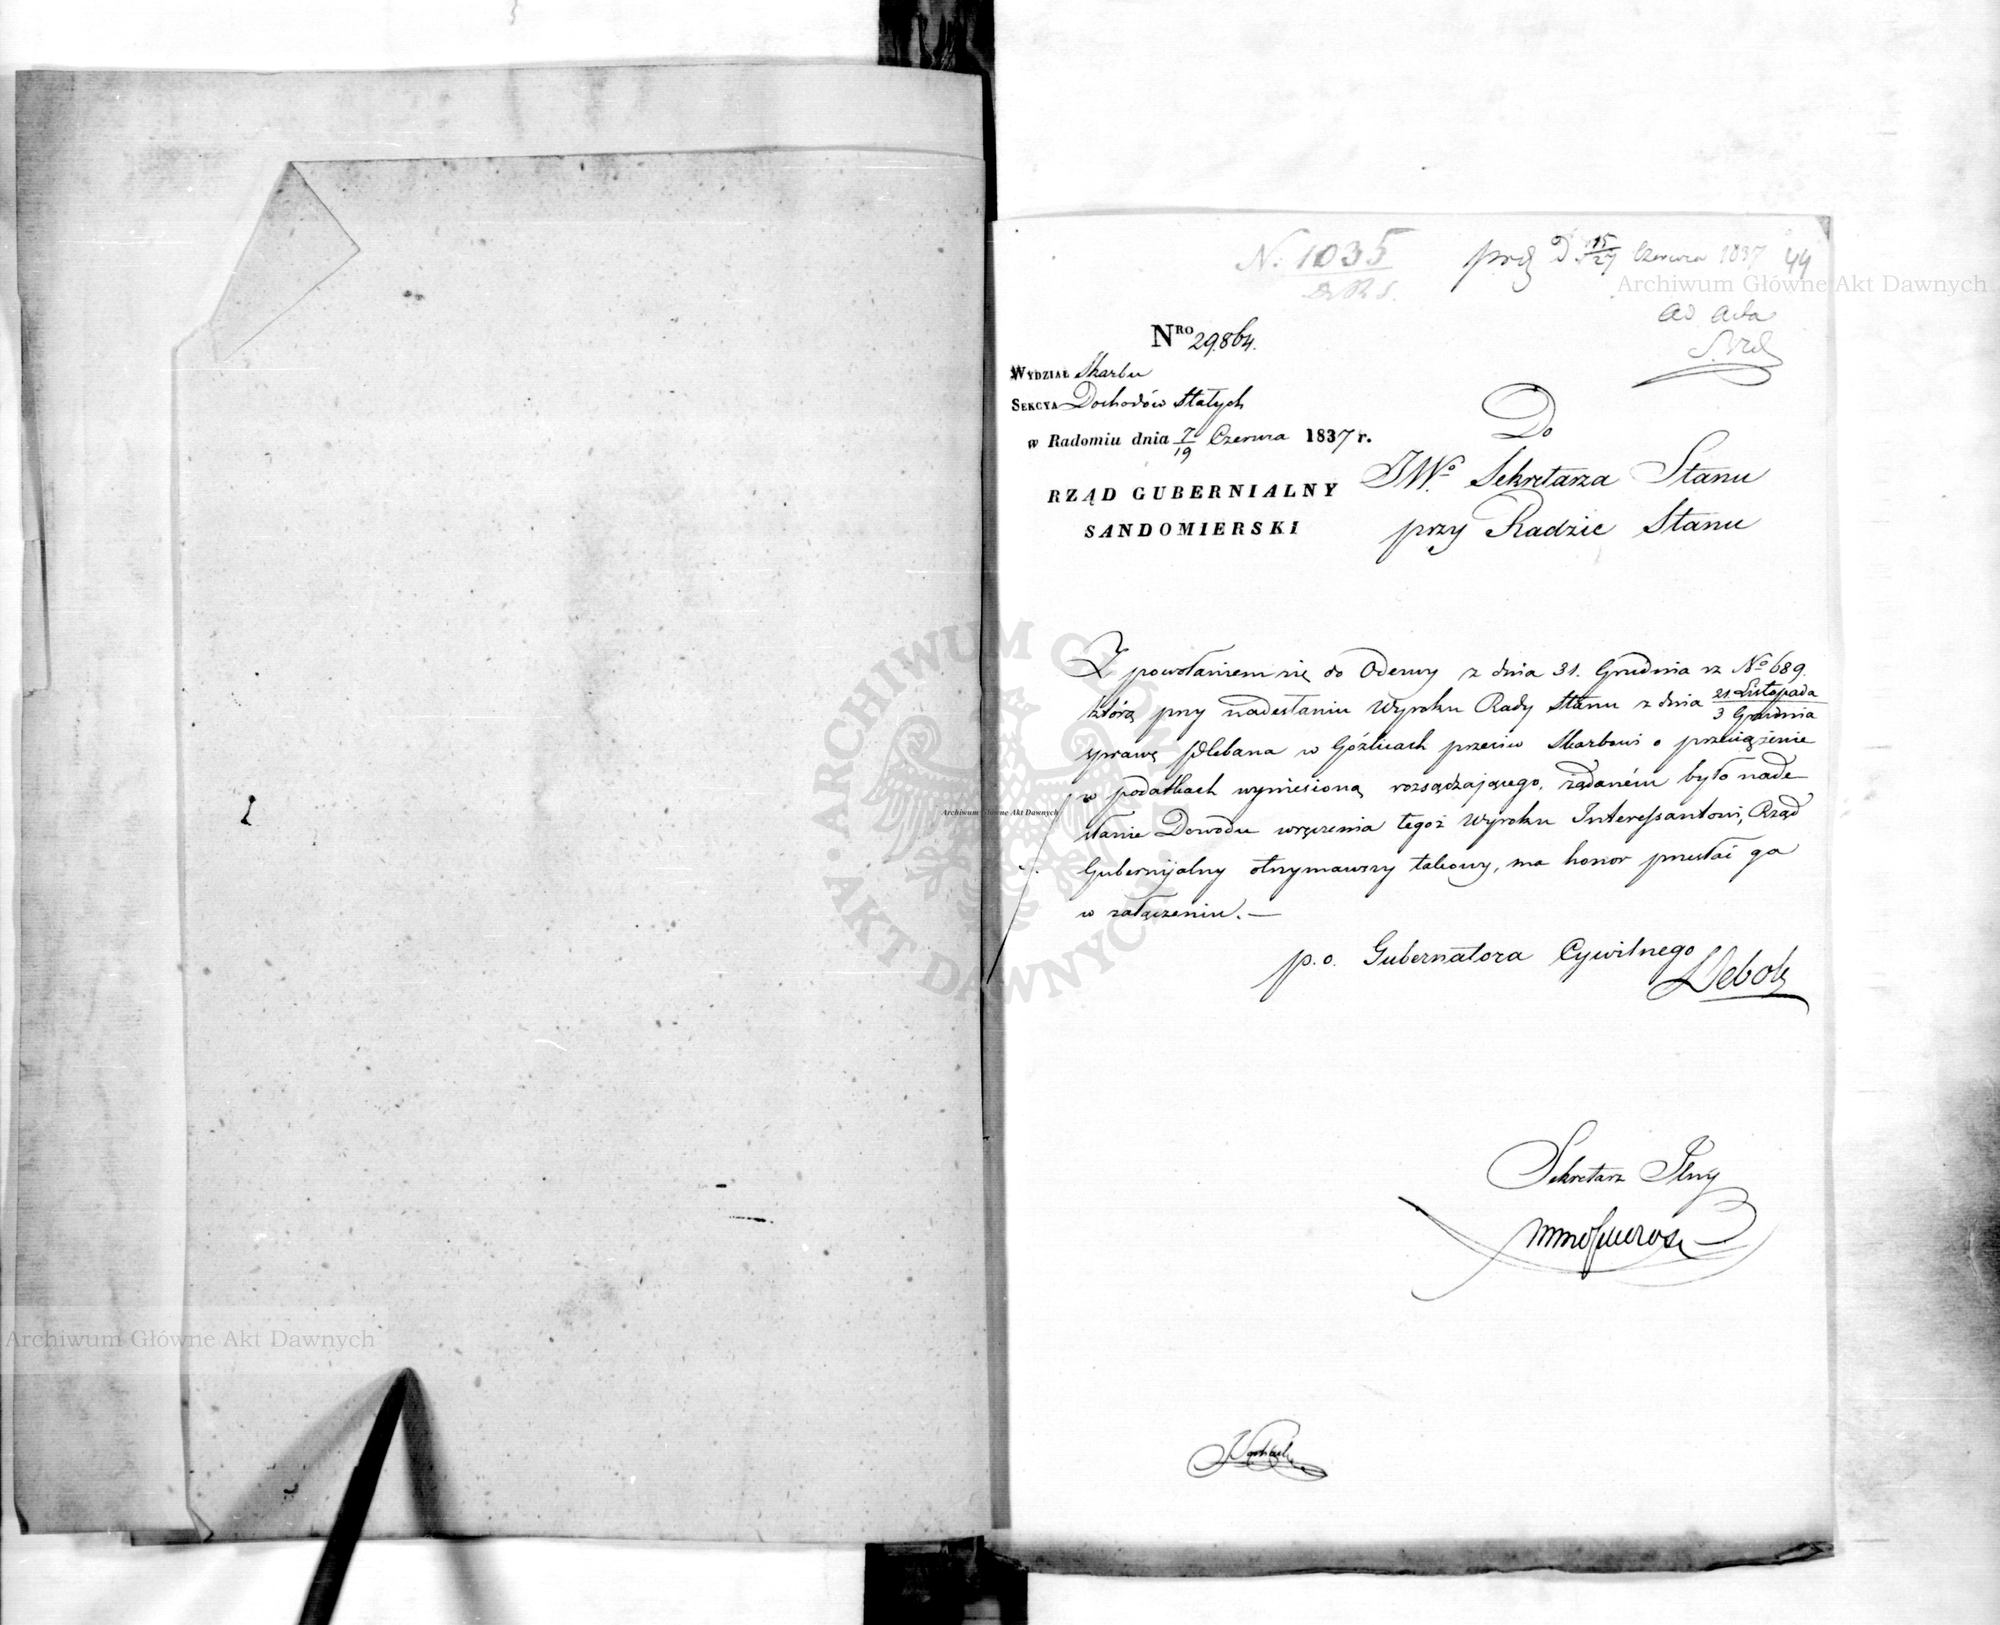 N. 1035
prd D. 15/27 Czerwca 1837
44
ad acta
Nro 29.864.
Wydział Skarbu
Sekcya Dochodów Stałych
w Radomiu dnia 7/19 Czerwca 1837 r.
RZĄD GUBERNIALNY
SANDOMIERSKI
Do
JWo. Sekretarza Stanu
przy Radzie Stanu
Z powołaniem się do Odezwy z dnia 31. Grudnia rz No 689.
którą przy nadesłaniu Wyroku Rady Stanu z dnia 21. Listopada/3 Grudnia
sprawę Plebana w Goźlicach przeciw Skarbowi o przeciążenie
w podatkach wyniesioną rozsądzającego, żądaném było nade
słanie Dowodu wręczenia tegoż Wyroku Interessantowi, Rząd
Gubernijalny otrzymawszy takowy, ma honor przesłać go
w załączeniu. —
p.o. Gubernatora Cywilnego
Deboli
Sekretarz Jlny
Archiwum Główne Akt Dawnych
ARCHIWUM GŁÓWNE AKT DAWNYCH
Archiwum Główne Akt Dawnych
Archiwum Główne Akt Dawnych